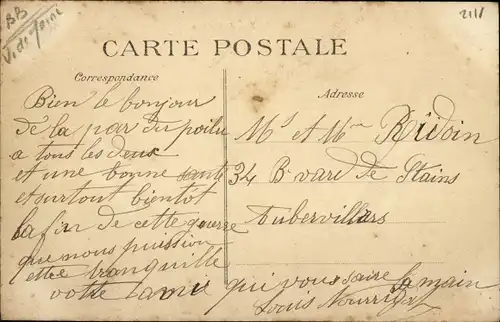 BB
2111
CARTE POSTALE
Correspondance
Bien le bonjour
de la par du poilu
a tous les deux
et une bonne santé
et surtout bientot
la fin de cette guerre
que nous puission
etre tranquille
votre qui vous saire la main
Louis
Adresse
Mr et Mme
34 B vard de Stains
Aubervillars